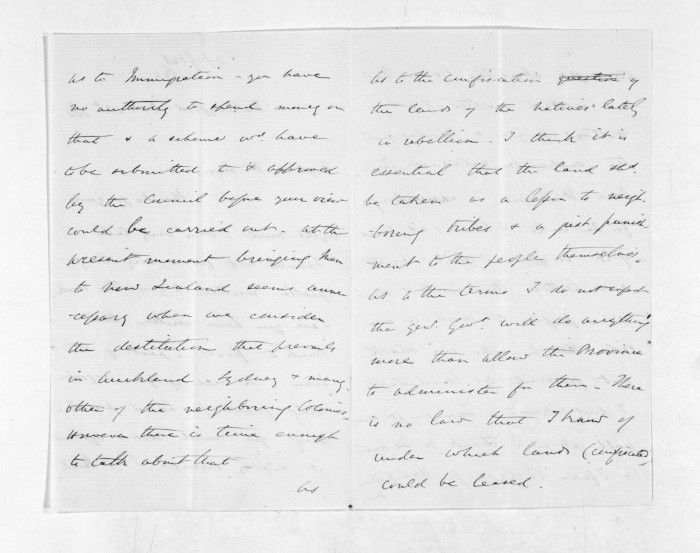 as to Immigration - you have
no authority to spend money on
that & a scheme wd. have
to be submitted to & approved
by the Council before your view
could be carried out - at the
present moment bringing men
to New Zealand seems unne
-cessary when we consider
the destitution that prevails
in Auckland - Sydney & many
other of the neighboring Colonies.
However there is time enough
to talk about that
as
as to the confiscation question of
the lands of the natives lately
in rebellion. I think it is
essential that the land shd.
be taken as a lesson to neigh-
-boring tribes & a just punish
ment to the people themselves.
as to the terms I do not expect
the Genl. Govt. will do anything
more than allow the Province
to administer for them - There
is no law that I know of
under which lands (confiscated)
could be leased.